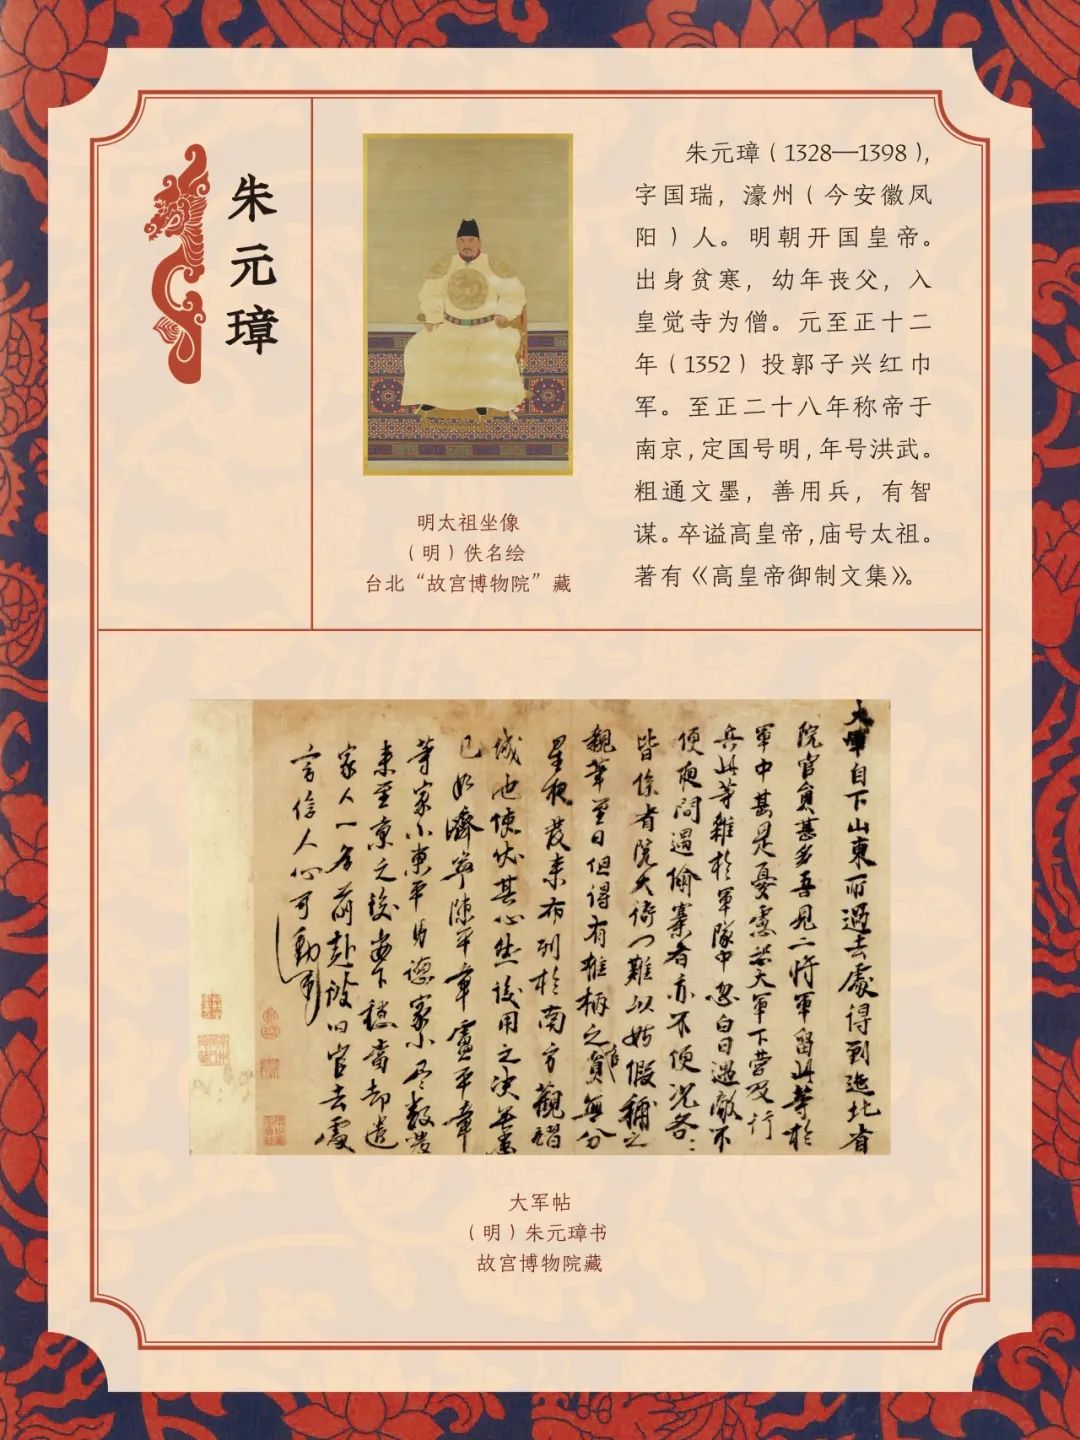 朱元璋
朱元璋（1328—1398），
字国瑞，濠州（今安徽凤
阳）人。明朝开国皇帝。
出身贫寒，幼年丧父，入
皇觉寺为僧。元至正十二
年（1352）投郭子兴红巾
军。至正二十八年称帝于
南京，定国号明，年号洪武。
粗通文墨，善用兵，有智
谋。卒谥高皇帝，庙号太祖。
著有《高皇帝御制文集》。
明太祖坐像
（明）佚名绘
台北“故宫博物院”藏
大軍自下山東所過去處得到迤北省
院官員甚多吾見二將軍留此等於
軍中甚是憂慮恐大軍下營及行
兵此等雜於軍隊中忽白日遇敵不
便夜間遇偷寨者亦不便況各
皆係省院大衙門難以姑假補之
親筆至日但得有椎柄之官員無分
星夜發來布列於南方觀
城池使伏其心然後用之決無患
已如濟寧陳平章盧平章
等家小東平馬德家小尽數發
來至京之後安下穩當却遣
家人一名前赴彼旧官去處
言信人心可動
大军帖
（明）朱元璋书
故宫博物院藏